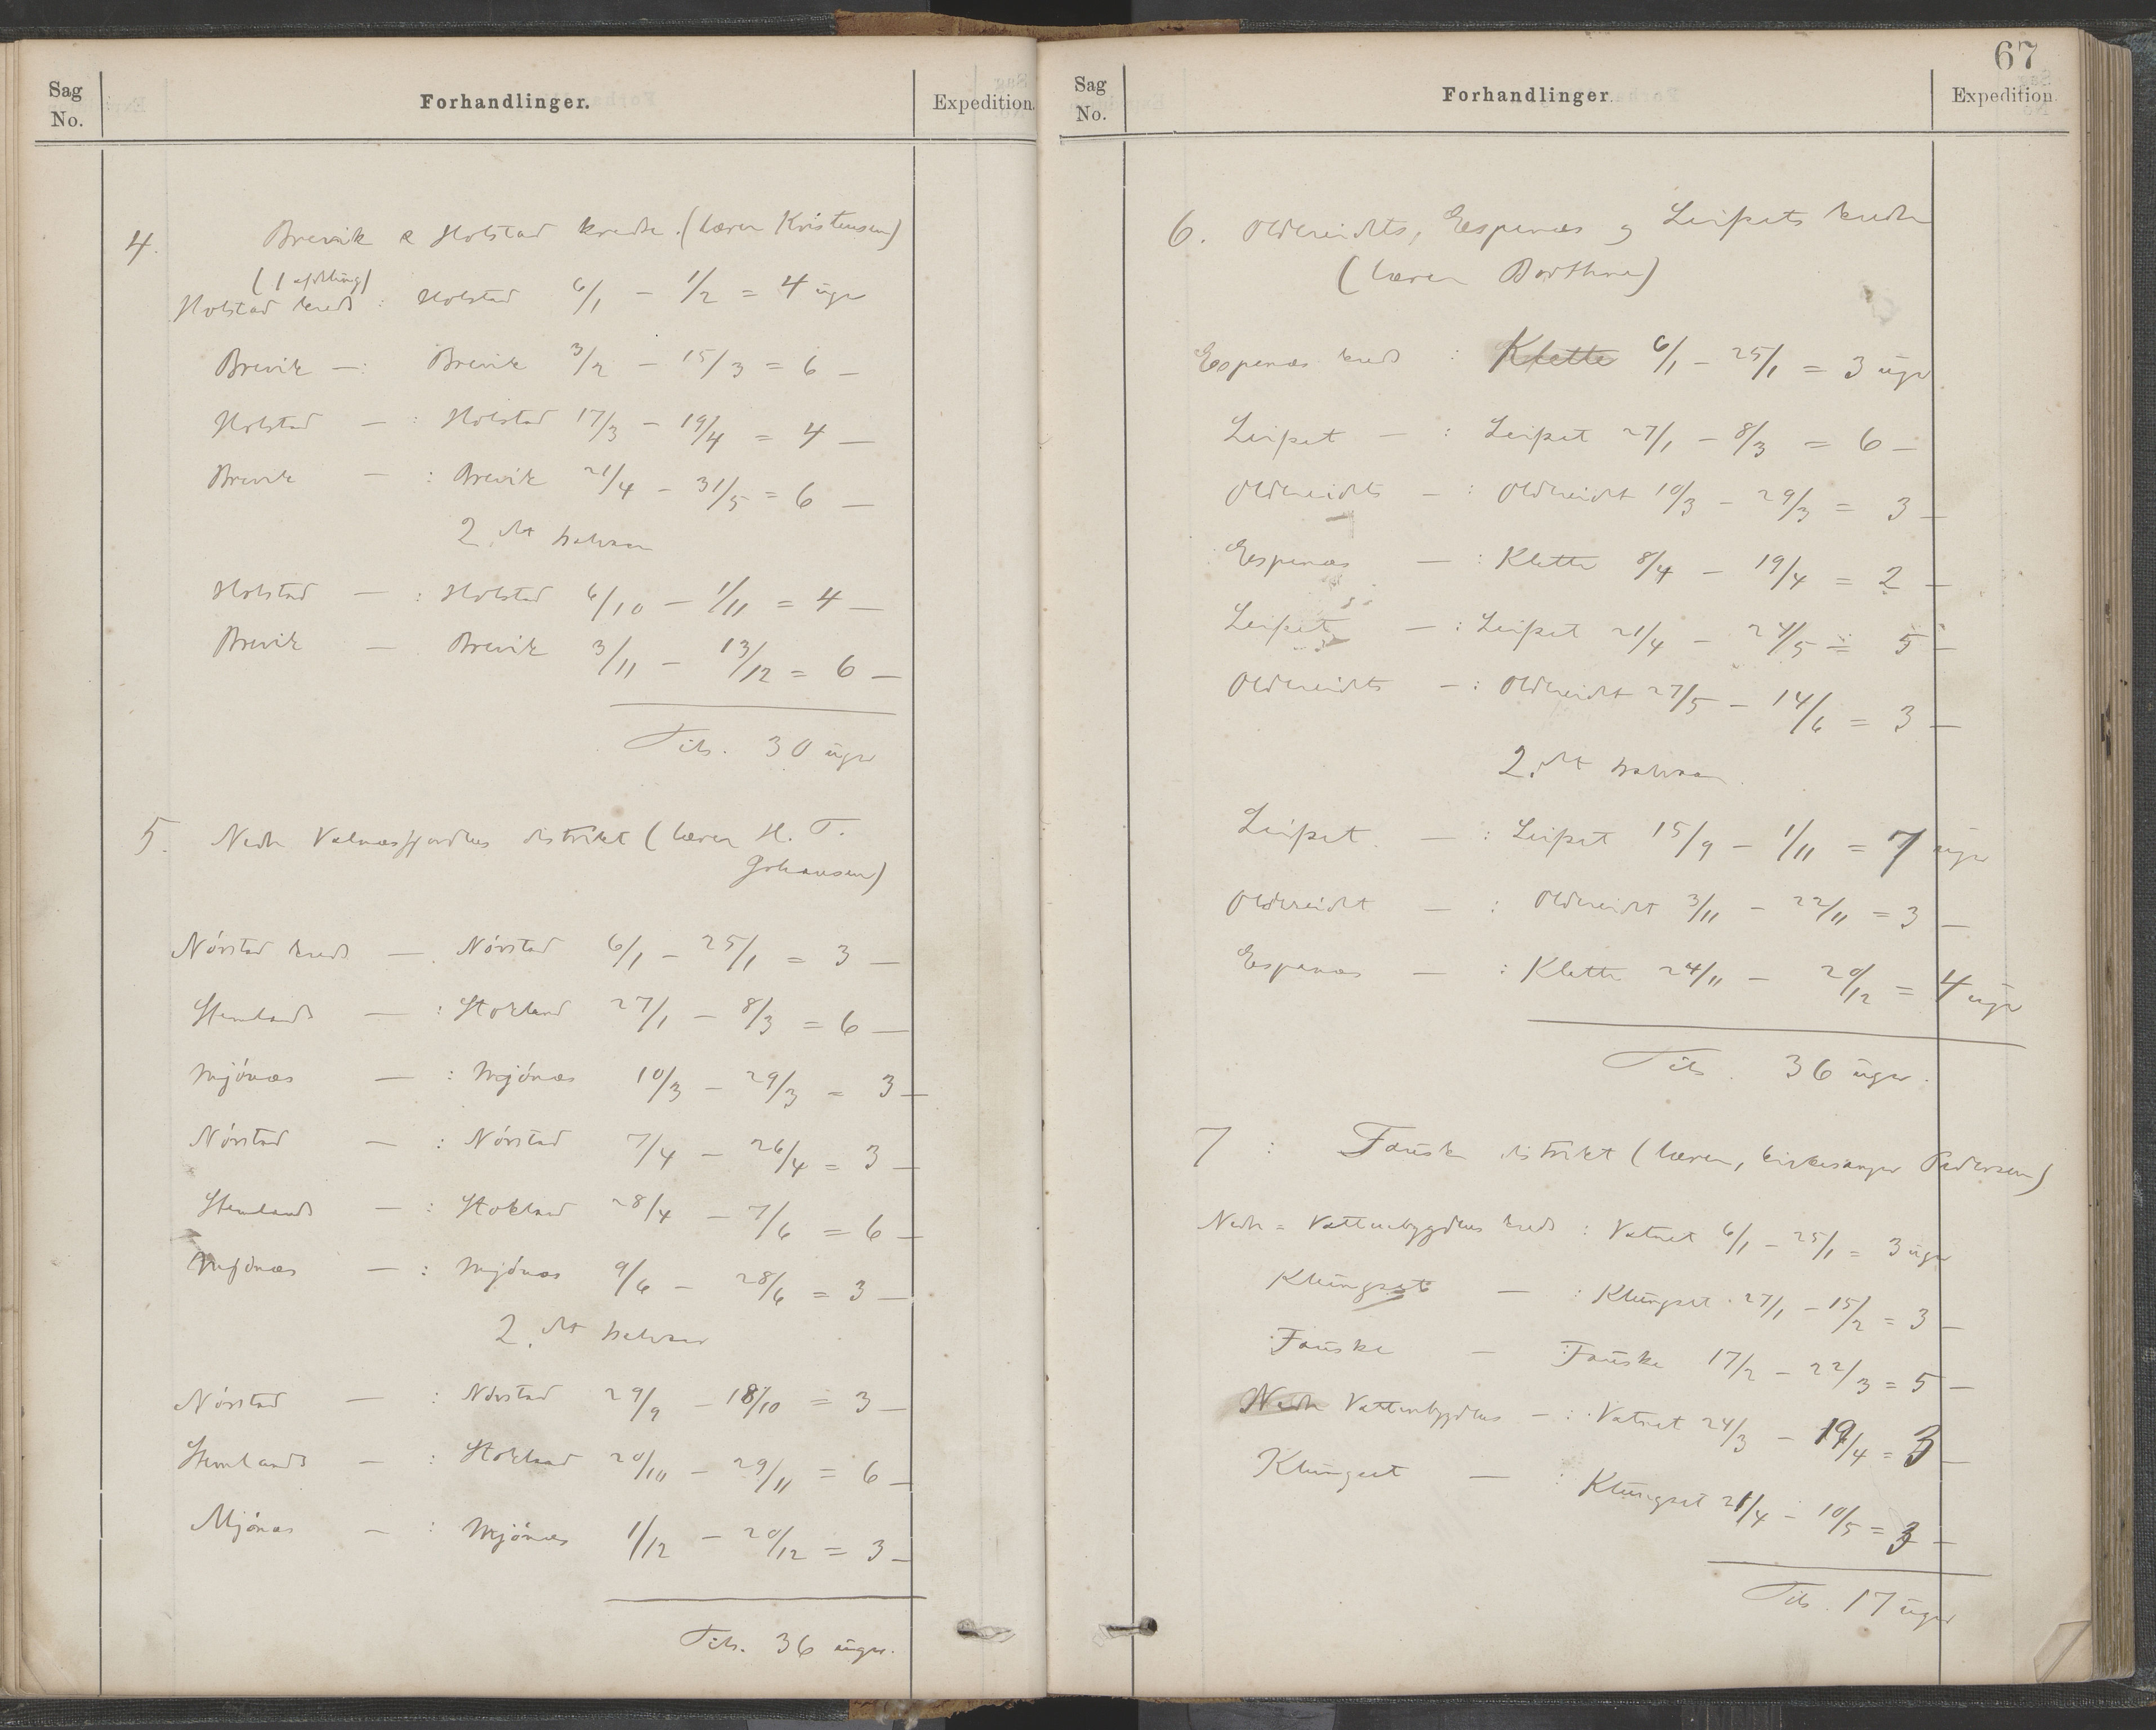 Sag
No.
Forhandlinger.
Expedition.
4. Brevik & Holstad kredse. (lærer Kristensen)
(1 afdeling)
Holstad kreds : Holstad 6/1 - 1/2 = 4 uger
Brevik — : Brevik 3/2 - 15/3 = 6 —
Holstad — : Holstad 17/3 - 19/4 = 4 —
Brevik — : Brevik 21/4 - 31/5 = 6 —
2. det halvaar
Holstad — : Holstad 6/10 - 1/11 = 4 —
Brevik — Brevik 3/11 - 13/12 = 6 —
Tils. 30 uger
5. Nedre Valnæsfjordens distrikt (lærer H. T.
Johansen)
Nórstad kreds — . Nórstad 6/1 - 25/1 = 3 —
Stemlands — : Stokland 27/1 - 8/3 = 6 —
Mjónæs — : Mjónæs 10/3 - 29/3 = 3 —
Nórstad — : Nórstad 7/4 - 26/4 = 3 —
Stemlands — : Stokland 28/4 - 7/6 = 6 —
Mjónæs — : Mjónæs 9/6 - 28/6 = 3 —
2. det halvaar
Nórstad — : Nórstad 29/9 - 18/10 = 3 —
Stemlands — : Stokland 20/10 - 29/11 = 6 —
Mjónæs — : Mjónæs 1/12 - 20/12 = 3 —
Tils. 36 uger.
67
Sag
No.
Forhandlinger
Expedition.
6. Oldereidets, Espenæs og Leifsets kredse
(lærer )
Espenæs kreds : Klette 6/1 - 25/1 = 3 uger
Leifset — : Leifset 27/1 - 8/3 = 6 —
Oldereidets — : Oldereidet 10/3 - 29/3 = 3 —
Espenæs — : Klette 8/4 - 19/4 = 2 —
Leifset — : Leifset 21/4 - 24/5 = 5 —
Oldereidets — : Oldereidet 27/5 - 14/6 = 3 —
2. det halvaar
Leifset — : Leifset 15/9 - 1/11 = 7 uger
Oldereidet — : Oldereidet 3/11 - 22/11 = 3 —
Espenæs — : Klette 24/11 - 20/12 = 4 uger
Tils. 36 uger.
7 : Fauske distrikt (lærer, kirkesanger Pedersen)
Nedre = Vattenbygdens kreds : Vatnet 6/1 - 25/1 = 3 uger
Klungset — : Klungset 27/1 - 15/2 = 3 —
Fauske — Fauske 17/2 - 22/3 = 5 —
Nedre Vattenbygdens — : Vatnet 24/3 - 19/4 = 3 —
Klungset — : Klungset 21/4 - 10/5 = 3 —
Tils. 17 uger